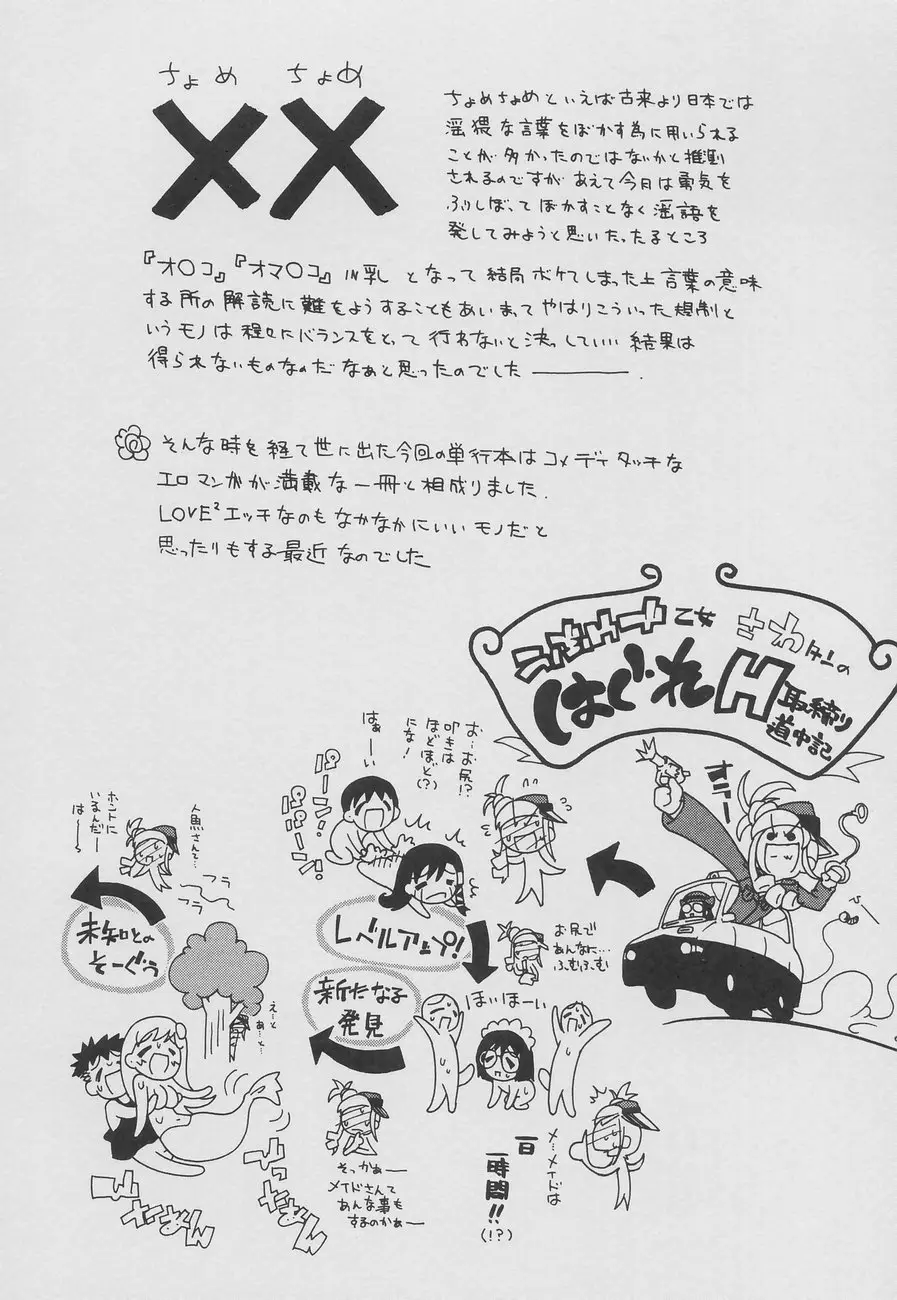 ちょめ ちょめ
××
ちょめちょめといえば古来より日本では
淫猥な言葉をぼかす為に用いられる
ことが多かったのではないかと推測
されるのですが あえて今日は勇気を
ふりしぼって ぼかすことなく淫語を
発してみようと思いたったるところ
『オ○コ』『オマ○コ』IN乳 となって 結局ボケてしまった上 言葉の意味
する所の解読に難をようすることもあいまって やはりこういった規制と
いうモノは 程々にバランスをとって 行わないと 決っしていい 結果は
得られないものなのだ なぁと思ったのでした ―――.
そんな時を経て世に出た今回の単行本は コメディタッチな
エロマンガが満載な一冊と相成りました.
LOVE²エッチなのも なかなかにいいモノだと
思ったりもする最近 なのでした
乙女 さわタンの
はぐれH取締り
道中記
オラー
お…お尻!?
叩きは
ほどほど(?)
にな!
はぁーい
パーン!
パーン!
レベルアップ!
お尻で
あんなに…
ふむふむ
ほいほーい
メ…メイドは
一日
一時間!!
(!?)
新たなる
発見
そっかぁー
メイドさんて
あんな事も
するのかぁー
えーと
あ…と…
人魚さんと…
フラ
フラ
ホントに
いるんだー
は――ら
未知との
そーぐう